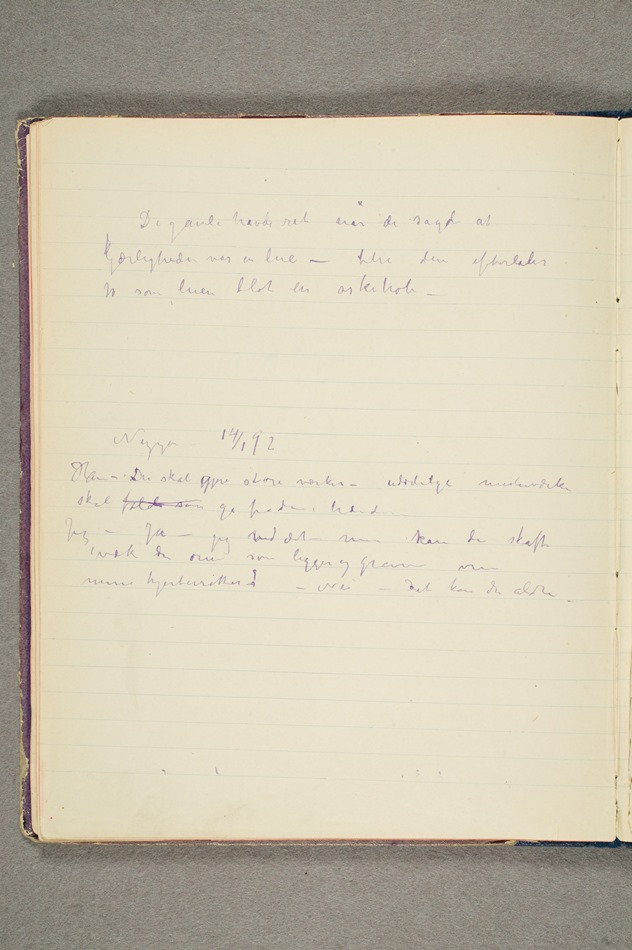 De gamle havde ret når de sagde at
Kjærligheden var en lue – thi den efterlader
jo som luen blot en askehob –
Nizza 14/1 92
Han – Du skal gjøre store værker – udødelige mesterværker
skal falde som gå fra din hånd
Jeg – Ja – jeg ved det men kan du skaffe
væk den orm som ligger og graver om
mine hjerterødder? – Nei – Det kan du aldri –